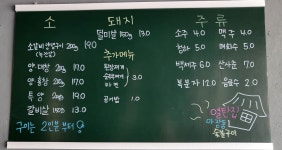 소 돼지 주류
소갈비살양구이 200g 19.0
덜미살 150g 13.0
소주 4.0 맥주 4.0
추가메뉴
청하 5.0 매화수 5.0
양대창 200g 17.0
된장찌개
양홍창 200g 17.0
3.0
백세주 6.0 산사춘 7.0
특양 200g 19.0
라면
갈비살 150g 13.0
공기밥 1.0
복분자 12.0 음료수 2.0
구이는 2인분 부터
숯불구이